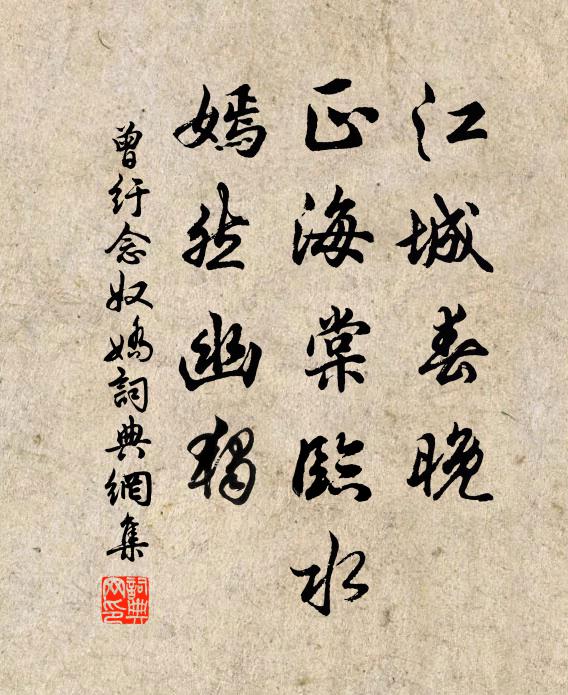 江城春晚
正海棠臨水
嫣然幽獨
曾紆念奴嬌詞典網集
詞典
網印